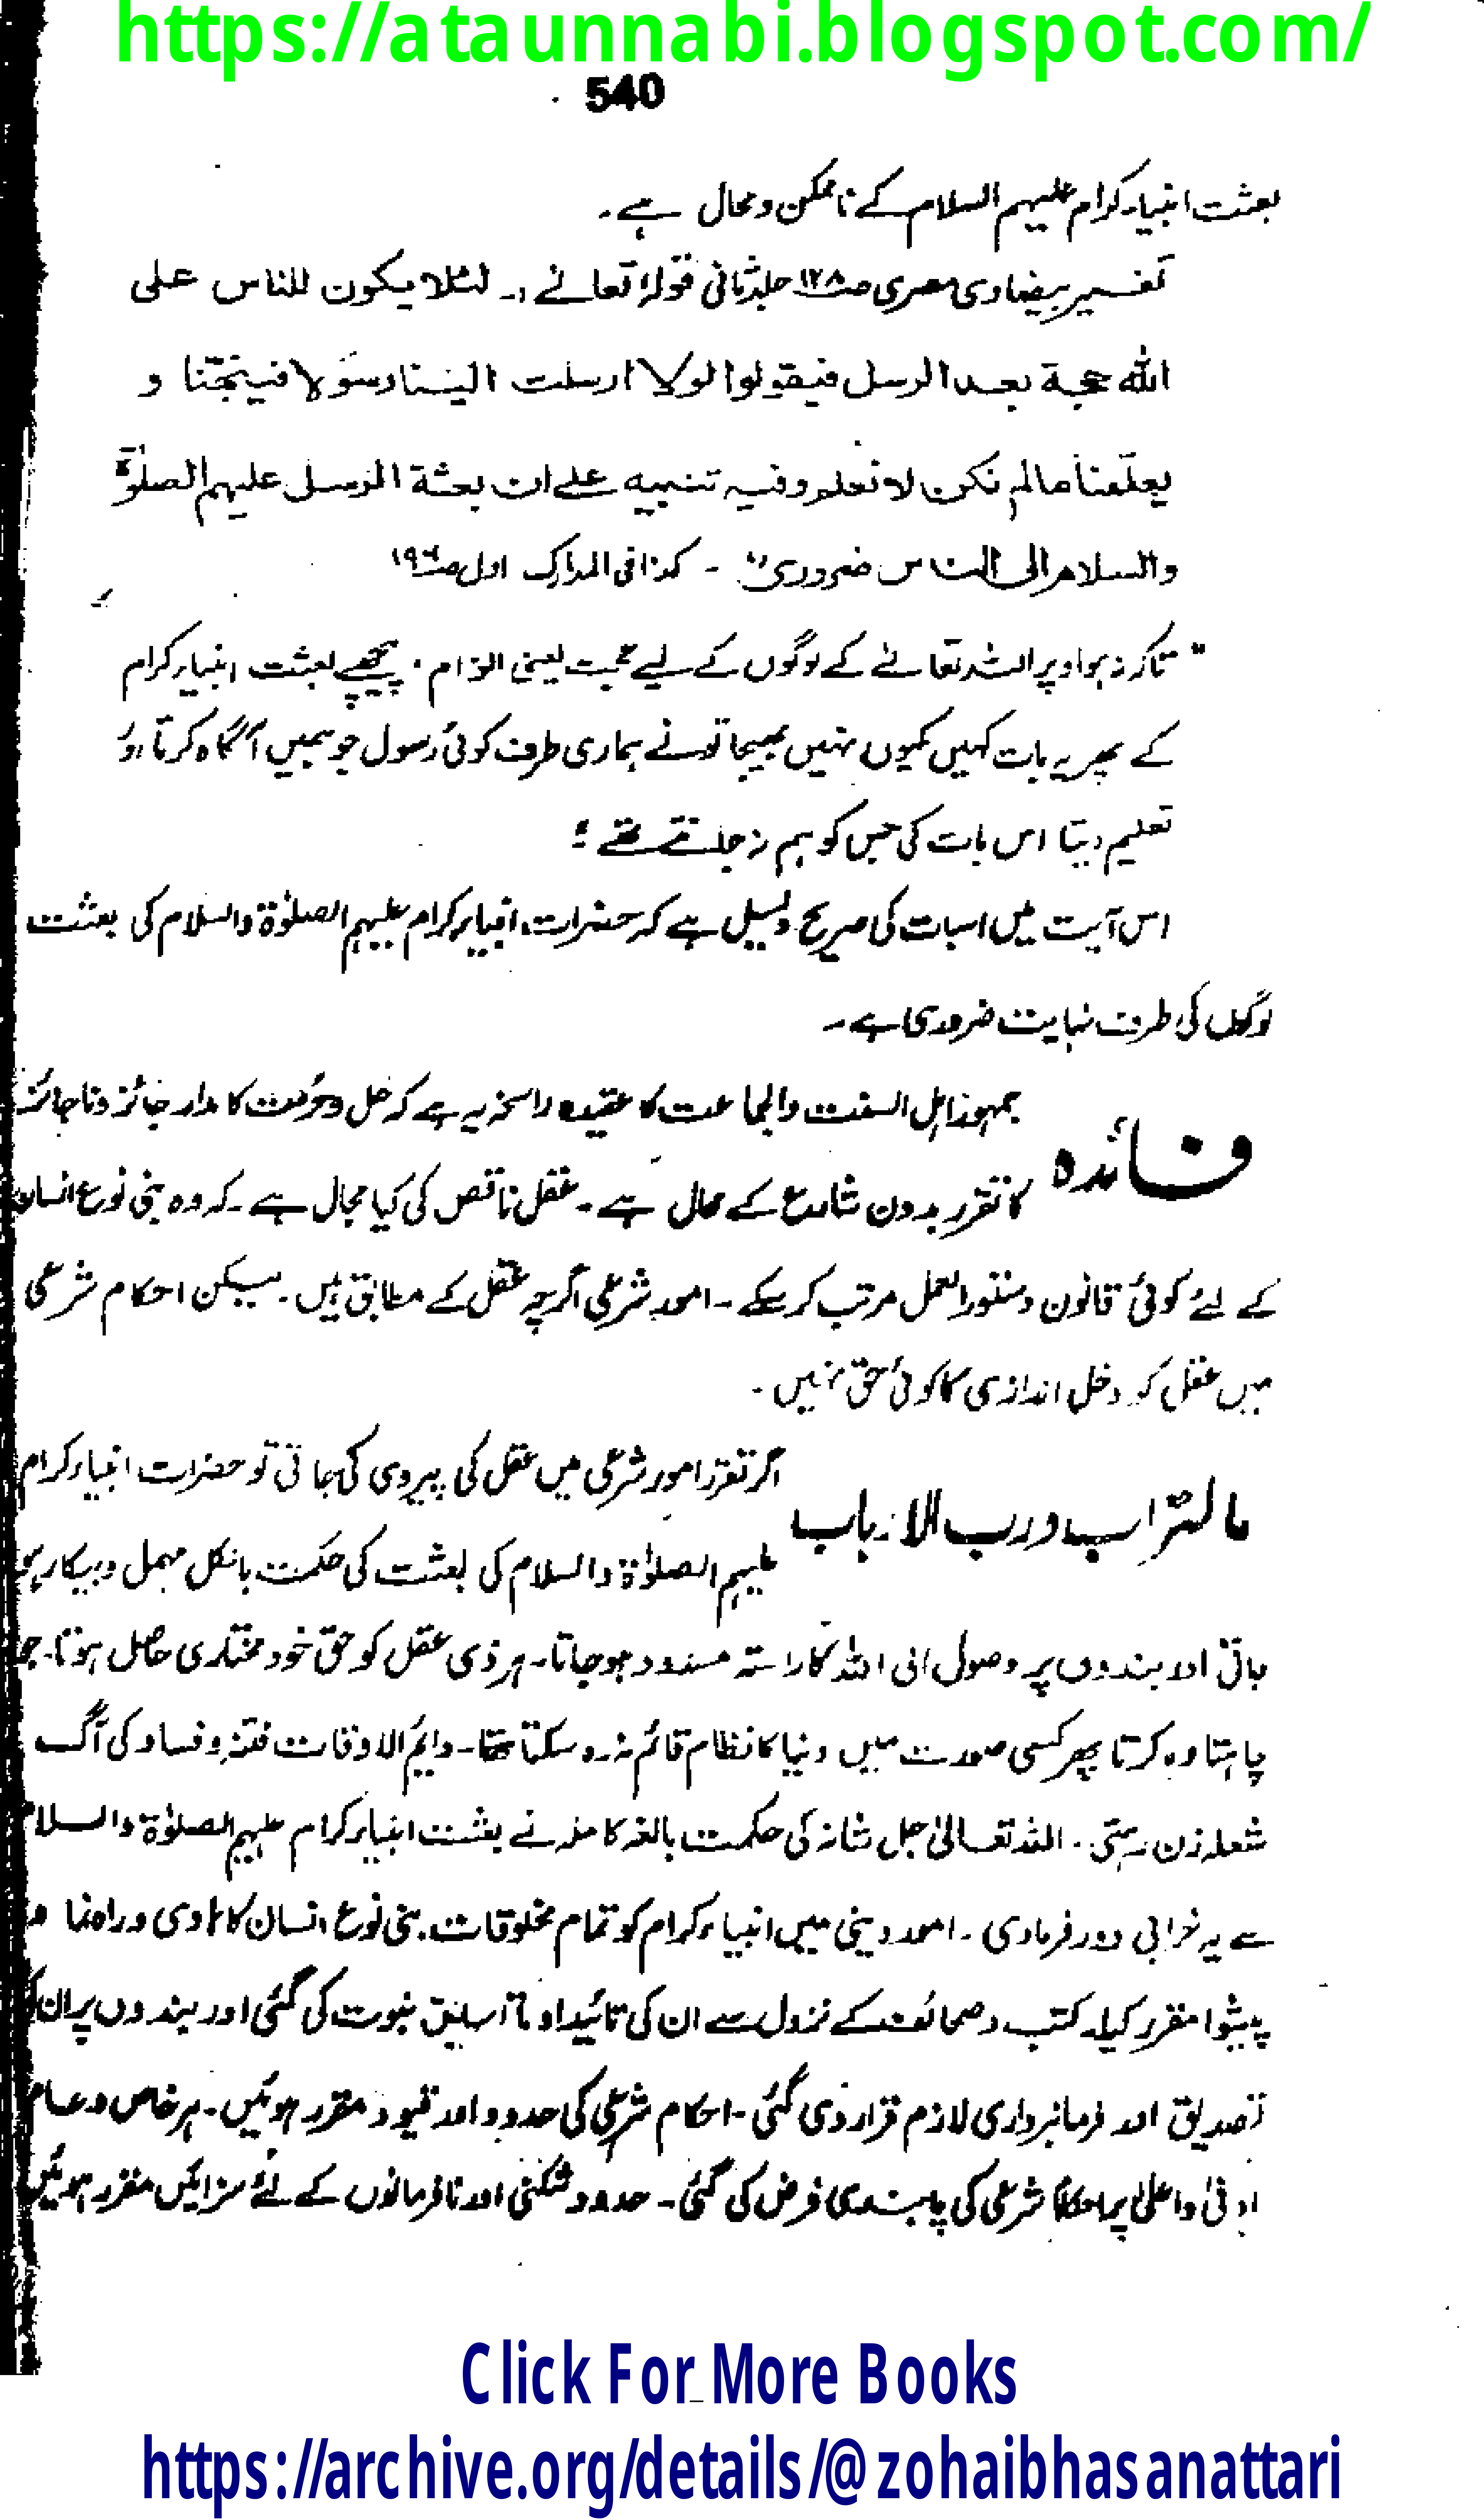 https://ataunnabi.blogspot.com/
540
بعثت انبیاء کرام علیہم السلام کے ناممکن و محال ہے۔
تفسیر بیضاوی مصری ص۱۲۸ جلد ثانی قولہ تعالےٰ :۔ لئلا یکون للناس علی
اللہ حجة بعد الرسل فیقولوا لولا ارسلت الینا رسولا فینبّھنا و
یعلّمنا مالم نکن لا نعلم وفیہ تنبیہ علے ان بعثة الرسل علیہم الصلوٰة
والسلام الی الناس ضروری" ۔ کذا فی المدارک اول ص۱۹۶
"تاکہ نہ ہو اوپر اللہ تعالےٰ کے لوگوں کے لیے حجت یعنی الزام . پیچھے بعثت انبیاء کرام
کے پھر یہ بات کہیں کیوں نہیں بھیجا تو نے ہماری طرف کوئی رسول جو ہمیں آگاہ کرتا اور
تعلیم دیتا اس بات کی جس کو ہم نہ جانتے تھے ؛
اس آیت میں اسبات کی صریح دلیل ہے کہ حضرات انبیاء کرام علیہم الصلوٰة والسلام کی بعثت
لوگوں کی طرف نہایت ضروری ہے۔
فائدہ
جمہور اہل السنت والجماعت کا عقیدہ راسخہ یہ ہے کہ حل و حرمت کا مدار جائز و ناجائز
کا تقرر بدون شارع کے محال ہے۔ عقل ناقص کی کیا مجال ہے۔ کہ وہ بنی نوع انسان
کے لئے کوئی قانون دستور العمل مرتب کر سکے۔ امور شرعی اگرچہ عقل کے مطابق ہیں۔ لیکن احکام شرعی
میں عقل کو دخل اندازی کا کوئی حق نہیں۔
ما لتراب و رب الارباب
اگر تقرر امور شرعی میں عقل کی پیروی کی جاتی تو حضرات انبیاء کرام
علیہم الصلوٰة والسلام کی بعثت کی حکمت بالکل مہمل و بیکار ہو
جاتی اور بندوں پر وصول الی اللہ کا راستہ مسدود ہو جاتا۔ ہر ذی عقل کو حق خود مختاری حاصل ہوتا۔ جو
چاہتا وہ کرتا پھر کسی صورت میں دنیا کا نظام قائم نہ رہ سکتا تھا۔ دایم الاوقات فتنہ و فساد کی آگ
شعلہ زن رہتی۔ اللہ تعالیٰ جل شانہ کی حکمت بالغہ کاملہ نے بعثت انبیاء کرام علیہم الصلوٰة والسلام
سے یہ خرابی دور فرما دی۔ امور دینی میں انبیاء کرام کو تمام مخلوقات بنی نوع انسان کا ہادی و راہنما و
پیشوا مقرر کیا۔ کتب و صحائف کے نزول سے ان کی تائید اور تصدیق نبوت کی گئی اور بندوں پر ان کی
تصدیق اور فرمانبرداری لازم قرار دی گئی۔ احکام شرعی کی حدود اور قیود مقرر ہوئیں۔ ہر خاص و عام
ادنیٰ و اعلیٰ پر احکام شرعی کی پابندی فرض کی گئی۔ حدود شکنی اور نافرمانوں کے لئے سزائیں مقرر ہوئیں
Click For More Books
https://archive.org/details/@zohaibhasanattari